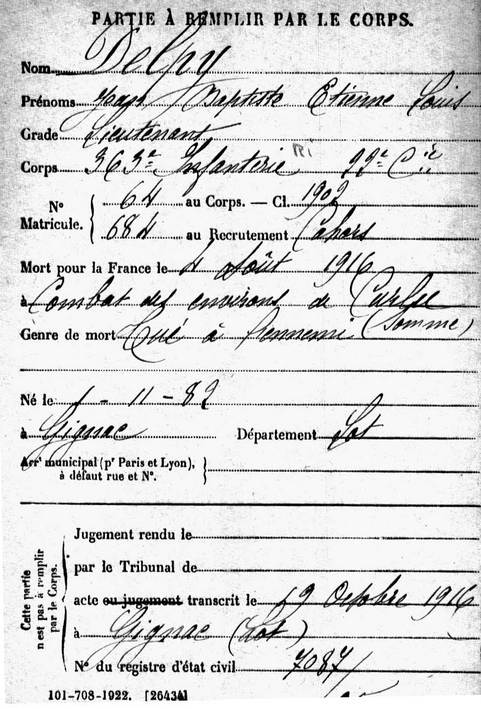 PARTIE À REMPLIR PAR LE CORPS.
Nom Delpy
Prénoms Jean Baptiste Etienne Louis
Grade Lieutenant
RI
Corps 363e Infanterie 22e Cie
N° Matricule. { 64 au Corps. — Cl. 1902
684 au Recrutement Cahors
Mort pour la France le 4 Août 1916
à Combat des environs de Curlu
(Somme)
Genre de mort Tué à l'ennemi
Né le 1 - 11 - 82
à Gignac Département Lot
Arrt municipal (pr Paris et Lyon), à défaut rue et N°. }
Cette partie n'est pas à remplir par le Corps.
Jugement rendu le
par le Tribunal de
acte ou jugement transcrit le 19 Octobre 1916
à Gignac (Lot)
N° du registre d'état civil 7087/
101-708-1922. [26434]